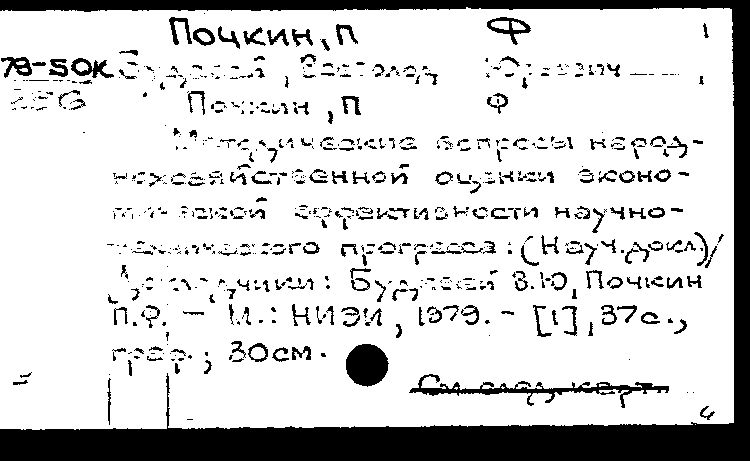 Почкин, П Ф
79-50К Будавей, Всеволод Юрьевич
256
Почкин, П Ф
Методические вопросы народ-
нохозяйственной оценки эконо-
мической эффективности научно-
технического прогресса: (Науч. докл.)/
Докладчики: Будавей В.Ю, Почкин
П.Ф. - М.: НИЭИ, 1979. - [1], 37с.,
граф.; 30см.
См след. карт.